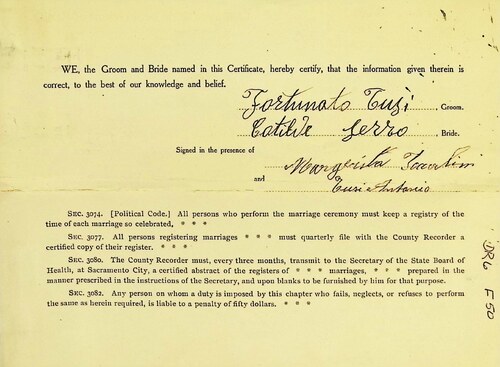 WE, the Groom and Bride named in this Certificate, hereby certify, that the information given therein is
correct, to the best of our knowledge and belief.
Fortunato Tusi, Groom.
Cotilde Serro, Bride.
Signed in the presence of
Margerita
and
Tusi Antonio
SEC. 3074. [Political Code.] All persons who perform the marriage ceremony must keep a registry of the
time of each marriage so celebrated, * * *
SEC. 3077. All persons registering marriages * * * must quarterly file with the County Recorder a
certified copy of their register. * * *
SEC. 3080. The County Recorder must, every three months, transmit to the Secretary of the State Board of
Health, at Sacramento City, a certified abstract of the registers of * * * marriages, * * * prepared in the
manner prescribed in the instructions of the Secretary, and upon blanks to be furnished by him for that purpose.
SEC. 3082. Any person on whom a duty is imposed by this chapter who fails, neglects, or refuses to perform
the same as herein required, is liable to a penalty of fifty dollars. * * *
F50